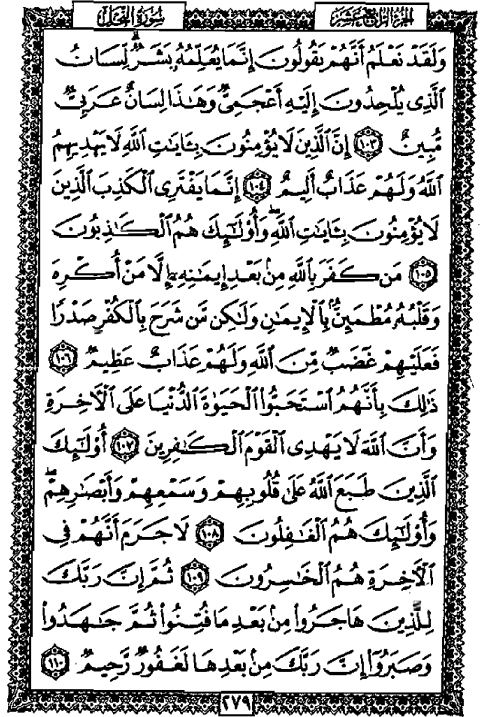 سُورَةُ النَّحۡلِ
الجُزءُ الرَّابِعَ عَشَرَ
وَلَقَدۡ نَعۡلَمُ أَنَّهُمۡ يَقُولُونَ إِنَّمَا يُعَلِّمُهُۥ بَشَرٞۗ لِّسَانُ
ٱلَّذِي يُلۡحِدُونَ إِلَيۡهِ أَعۡجَمِيّٞ وَهَٰذَا لِسَانٌ عَرَبِيّٞ
مُّبِينٌ ١٠٣ إِنَّ ٱلَّذِينَ لَا يُؤۡمِنُونَ بِـَٔايَٰتِ ٱللَّهِ لَا يَهۡدِيهِمُ
ٱللَّهُ وَلَهُمۡ عَذَابٌ أَلِيمٌ ١٠٤ إِنَّمَا يَفۡتَرِي ٱلۡكَذِبَ ٱلَّذِينَ
لَا يُؤۡمِنُونَ بِـَٔايَٰتِ ٱللَّهِۖ وَأُوْلَٰٓئِكَ هُمُ ٱلۡكَٰذِبُونَ
١٠٥ مَن كَفَرَ بِٱللَّهِ مِنۢ بَعۡدِ إِيمَٰنِهِۦٓ إِلَّا مَنۡ أُكۡرِهَ
وَقَلۡبُهُۥ مُطۡمَئِنُّۢ بِٱلۡإِيمَٰنِ وَلَٰكِن مَّن شَرَحَ بِٱلۡكُفۡرِ صَدۡرٗا
فَعَلَيۡهِمۡ غَضَبٞ مِّنَ ٱللَّهِ وَلَهُمۡ عَذَابٌ عَظِيمٞ ١٠٦
ذَٰلِكَ بِأَنَّهُمُ ٱسۡتَحَبُّواْ ٱلۡحَيَوٰةَ ٱلدُّنۡيَا عَلَى ٱلۡأٓخِرَةِ
وَأَنَّ ٱللَّهَ لَا يَهۡدِي ٱلۡقَوۡمَ ٱلۡكَٰفِرِينَ ١٠٧ أُوْلَٰٓئِكَ
ٱلَّذِينَ طَبَعَ ٱللَّهُ عَلَىٰ قُلُوبِهِمۡ وَسَمۡعِهِمۡ وَأَبۡصَٰرِهِمۡۖ
وَأُوْلَٰٓئِكَ هُمُ ٱلۡغَٰفِلُونَ ١٠٨ لَا جَرَمَ أَنَّهُمۡ فِي
ٱلۡأٓخِرَةِ هُمُ ٱلۡخَٰسِرُونَ ١٠٩ ثُمَّ إِنَّ رَبَّكَ
لِلَّذِينَ هَاجَرُواْ مِنۢ بَعۡدِ مَا فُتِنُواْ ثُمَّ جَٰهَدُواْ
وَصَبَرُوٓاْ إِنَّ رَبَّكَ مِنۢ بَعۡدِهَا لَغَفُورٞ رَّحِيمٞ ١١٠
٢٧٩